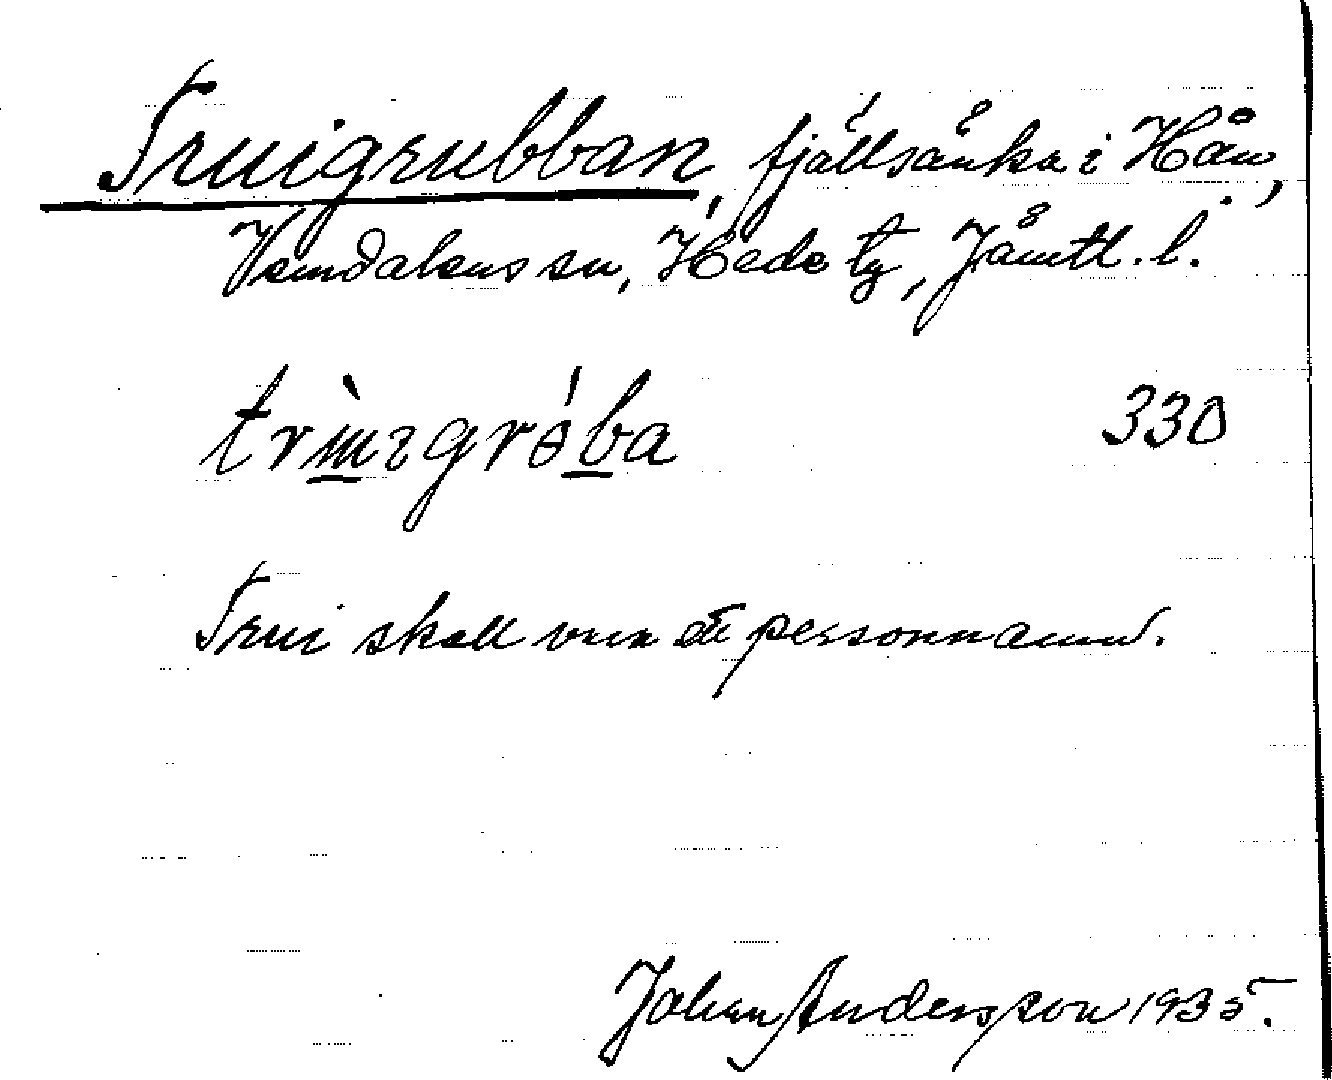 Truigrubban, fjällsänka i Hån,
Vemdalens sn, Hede tg, Jämtl. l.
330
Trui skall vara ett personnamn.
Johan Andersson 1935.